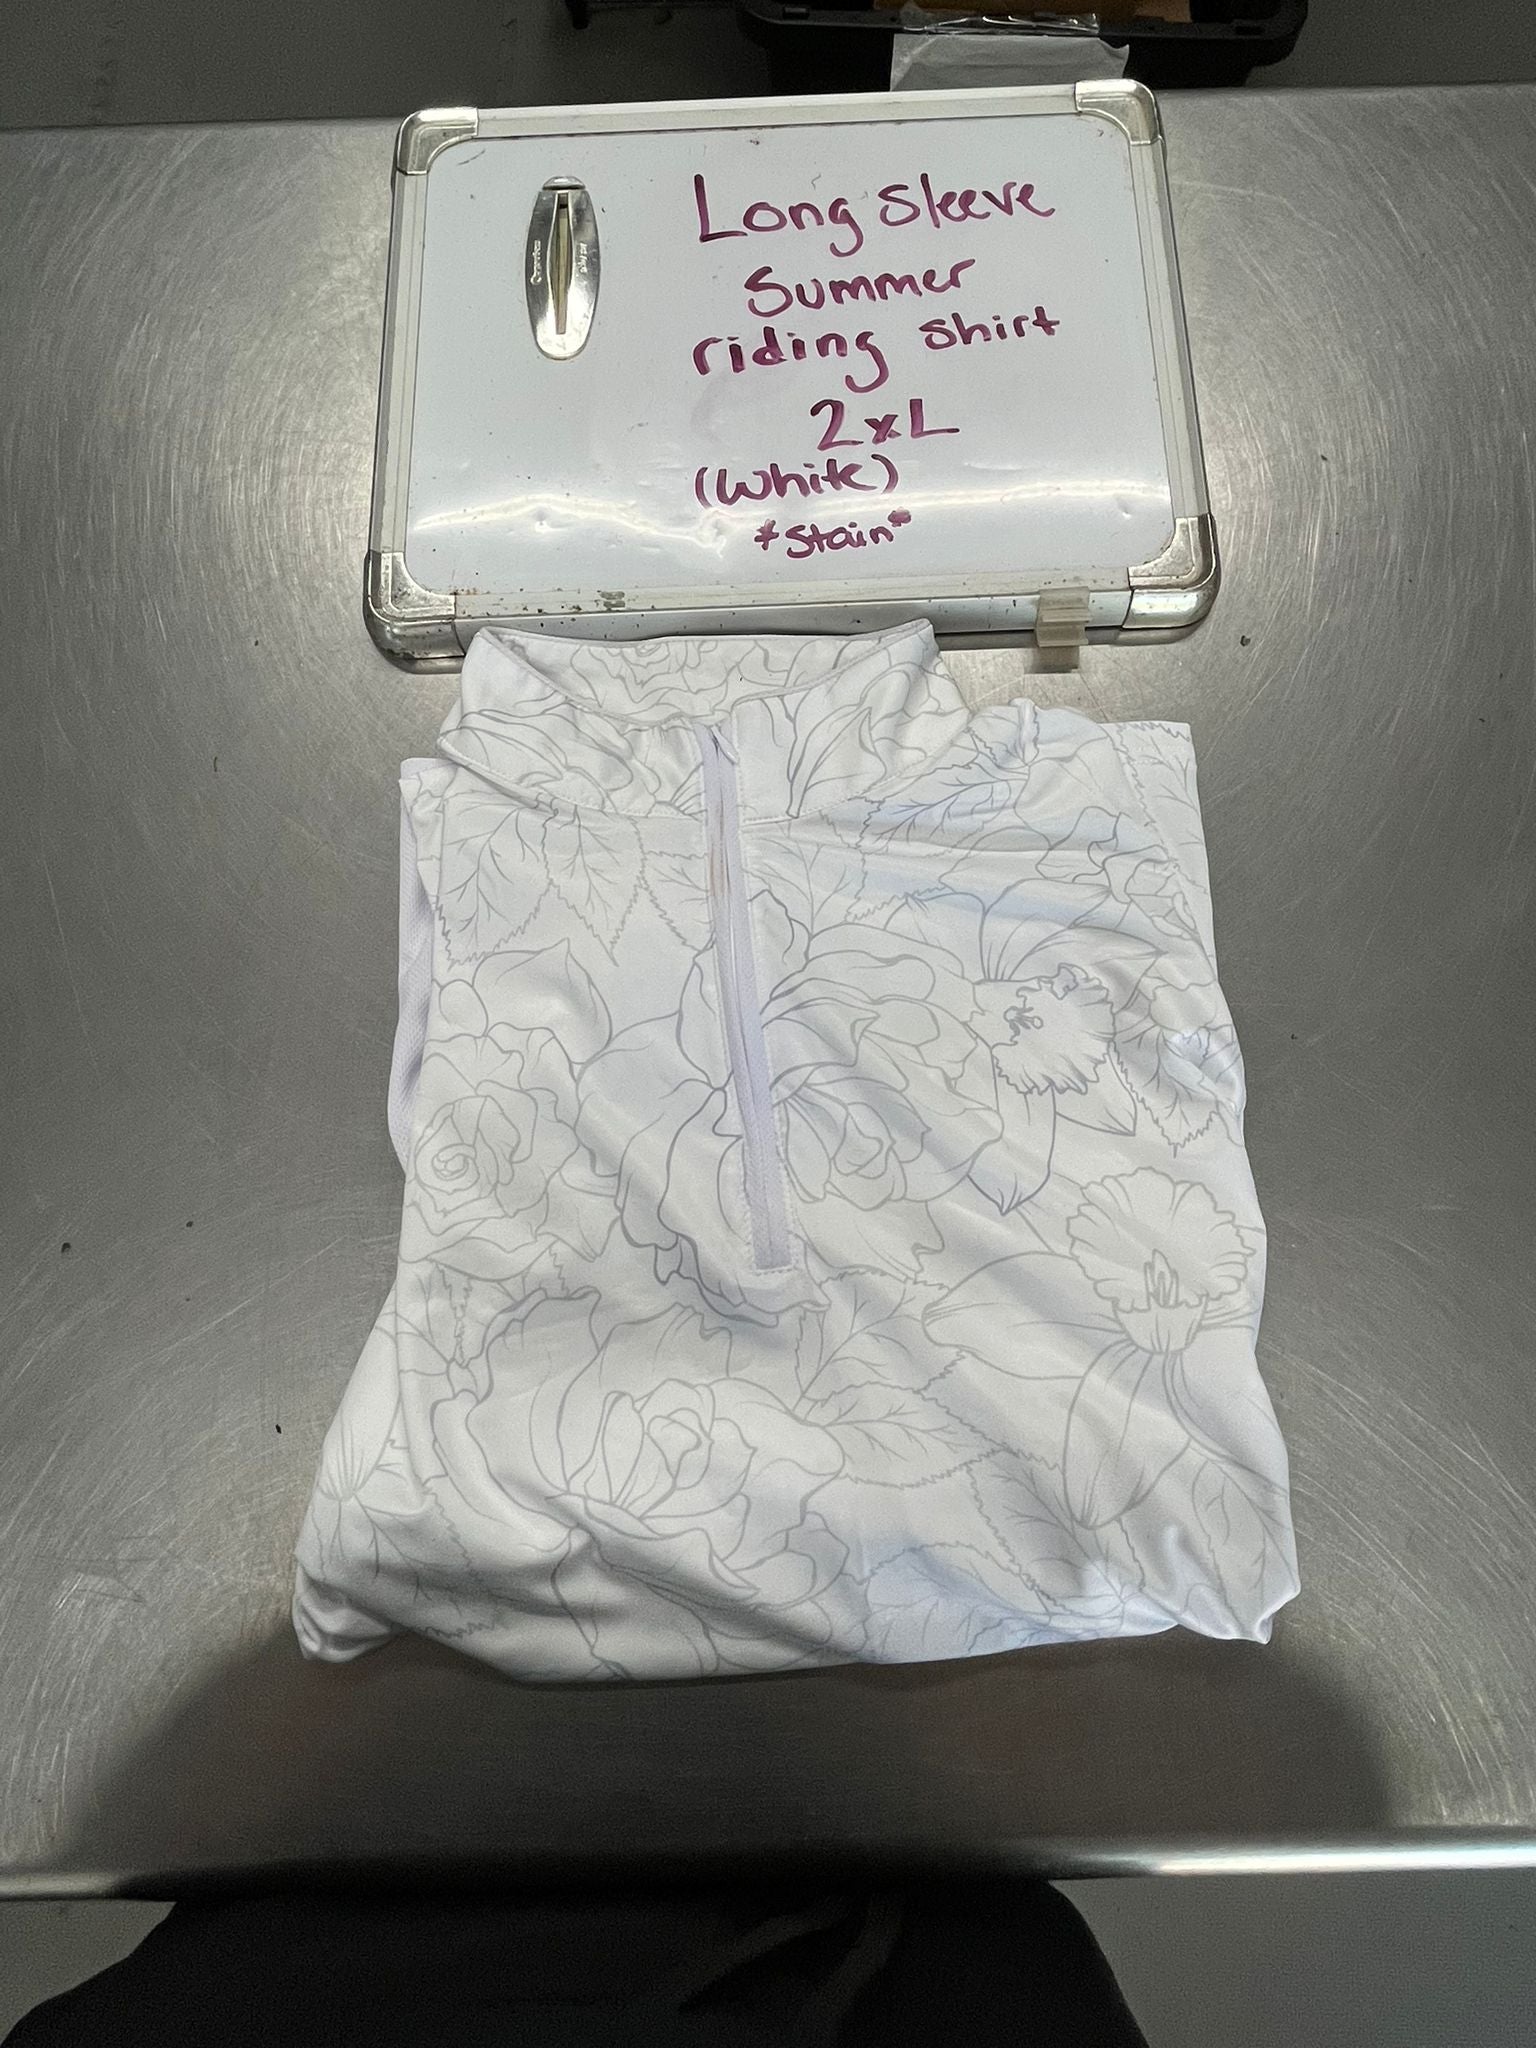 Long Sleeve
Summer
riding shirt
2xL
(White)
*Stain*